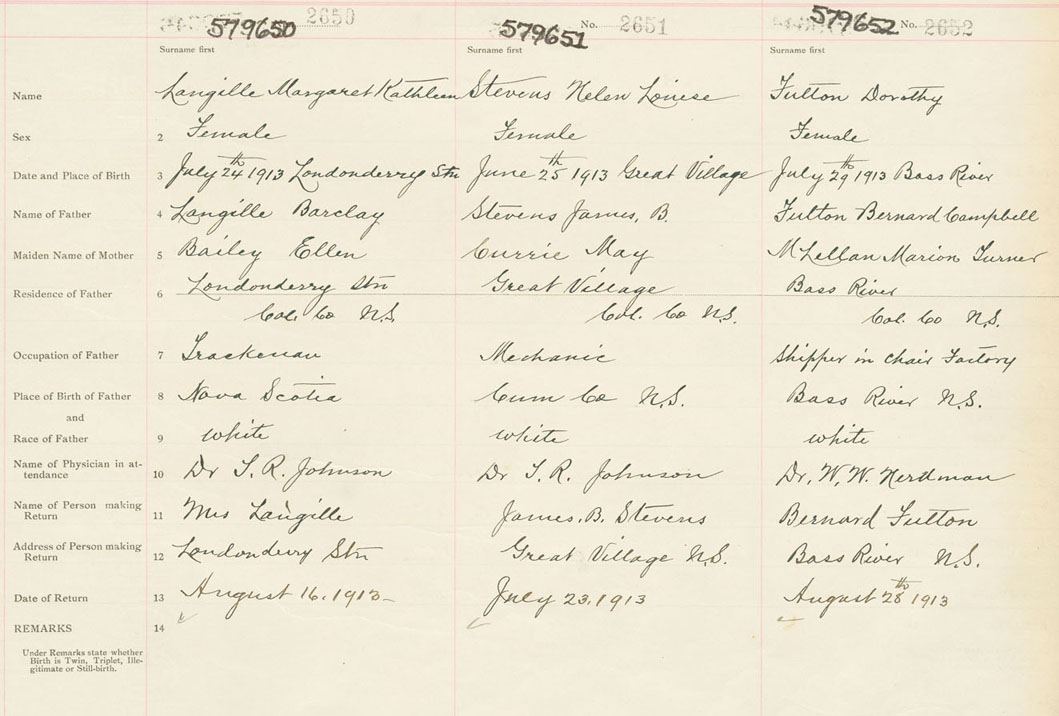 2650 No. 2651 No. 2652
579650 579651 579652
Surname first Surname first Surname first
Name Langille Margaret Kathleen Stevens Helen Louise Fulton Dorothy
Sex 2 Female Female Female
Date and Place of Birth 3 July 24th 1913 Londonderry Stn June 25th 1913 Great Village July 29th 1913 Bass River
Name of Father 4 Langille Barclay Stevens James, B. Fulton Bernard Campbell
Maiden Name of Mother 5 Bailey Ellen Currie May McLellan Marion Turner
Residence of Father 6 Londonderry Stn Great Village Bass River
Col. Co N.S. Col. Co N.S. Col. Co N.S.
Occupation of Father 7 Trackman Mechanic Shipper in Chair Factory
Place of Birth of Father 8 Nova Scotia Cum Co N.S. Bass River N.S.
and
Race of Father 9 white white white
Name of Physician in at-
tendance 10 Dr T. R. Johnson Dr T. R. Johnson Dr. W. W. Herdman
Name of Person making
Return 11 Mrs Langille James. B. Stevens Bernard Fulton
Address of Person making
Return 12 Londonderry Stn Great Village N.S. Bass River N.S.
Date of Return 13 August 16. 1913 July 23. 1913 August 28th 1913
REMARKS 14
Under Remarks state whether
Birth is Twin, Triplet, Ille-
gitimate or Still-birth.